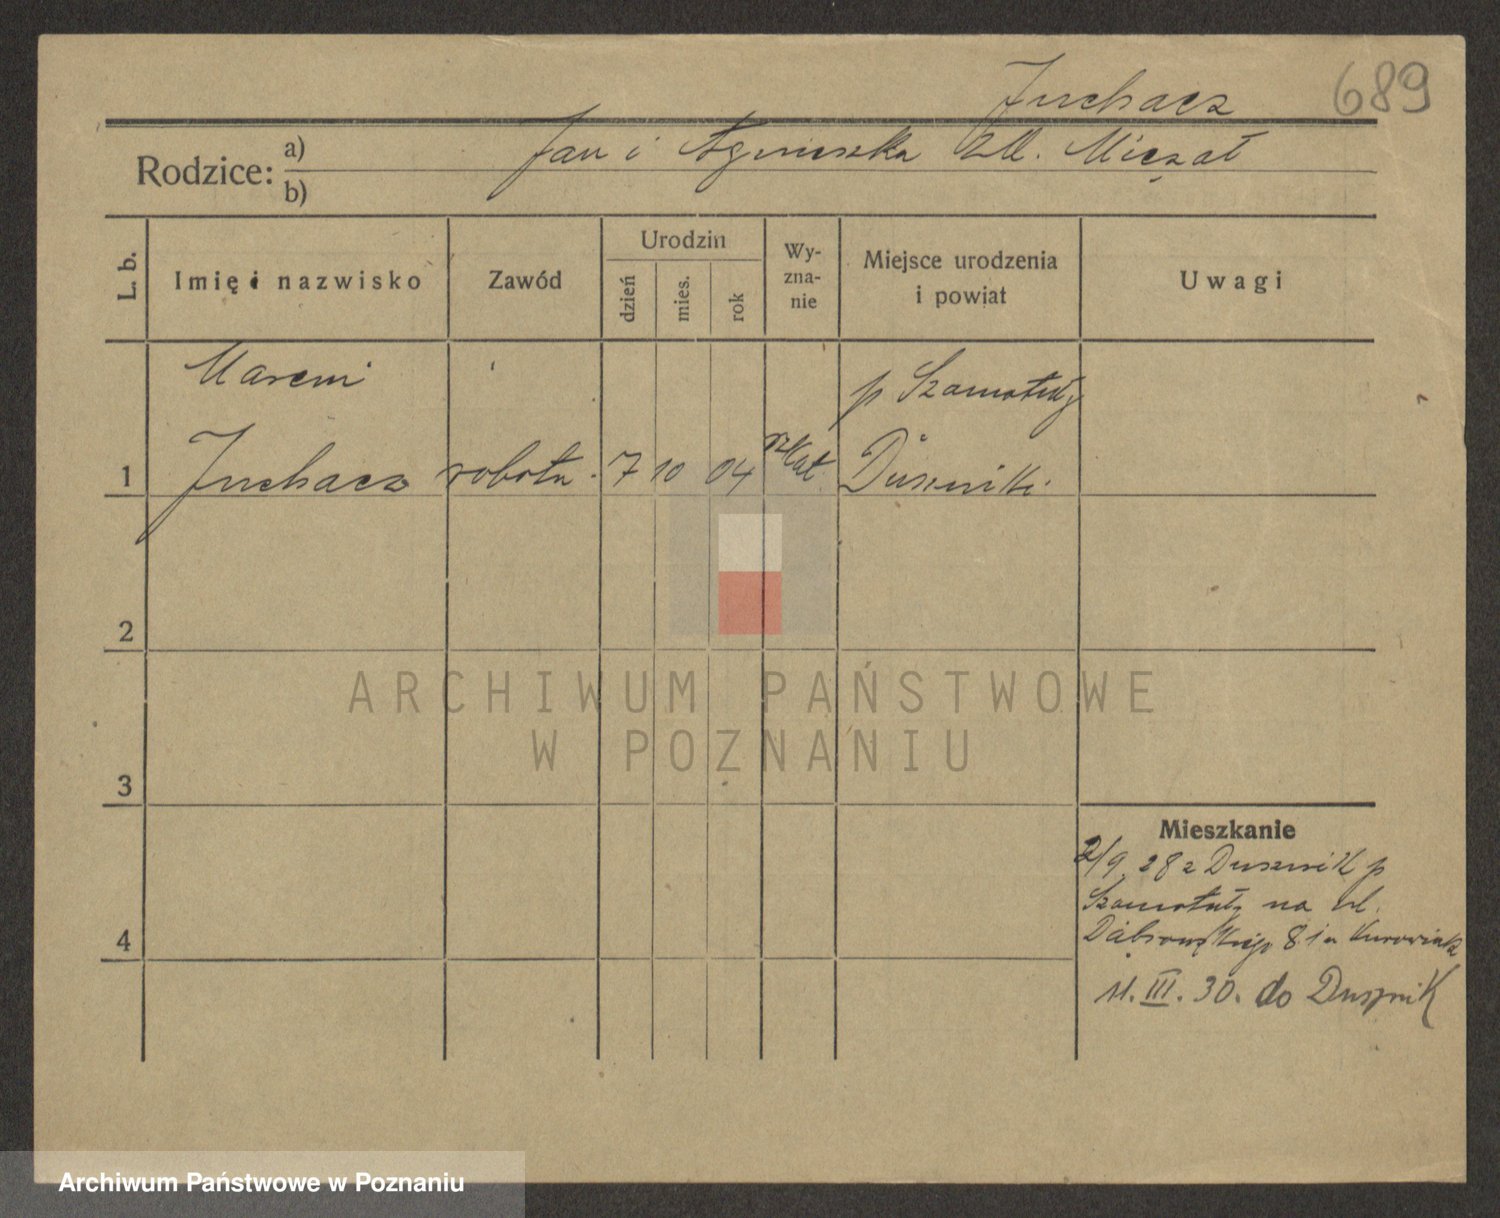 Juchacz 689
Rodzice: a) Jan i Agnieszka
b)
L. b. Imię i nazwisko Zawód Urodzin dzień mies. rok Wyznanie Miejsce urodzenia i powiat Uwagi
Marcin
p Szamotuły
1 Juchacz robotn. 7 10 04 rz Kat Duszniki
2
3
4
Mieszkanie
2/9 28 z Dusznik p
Szamotuły na ul.
Dąbrowskiego 8
11. III. 30. do Dusznik
ARCHIWUM PAŃSTWOWE
W POZNANIU
Archiwum Państwowe w Poznaniu